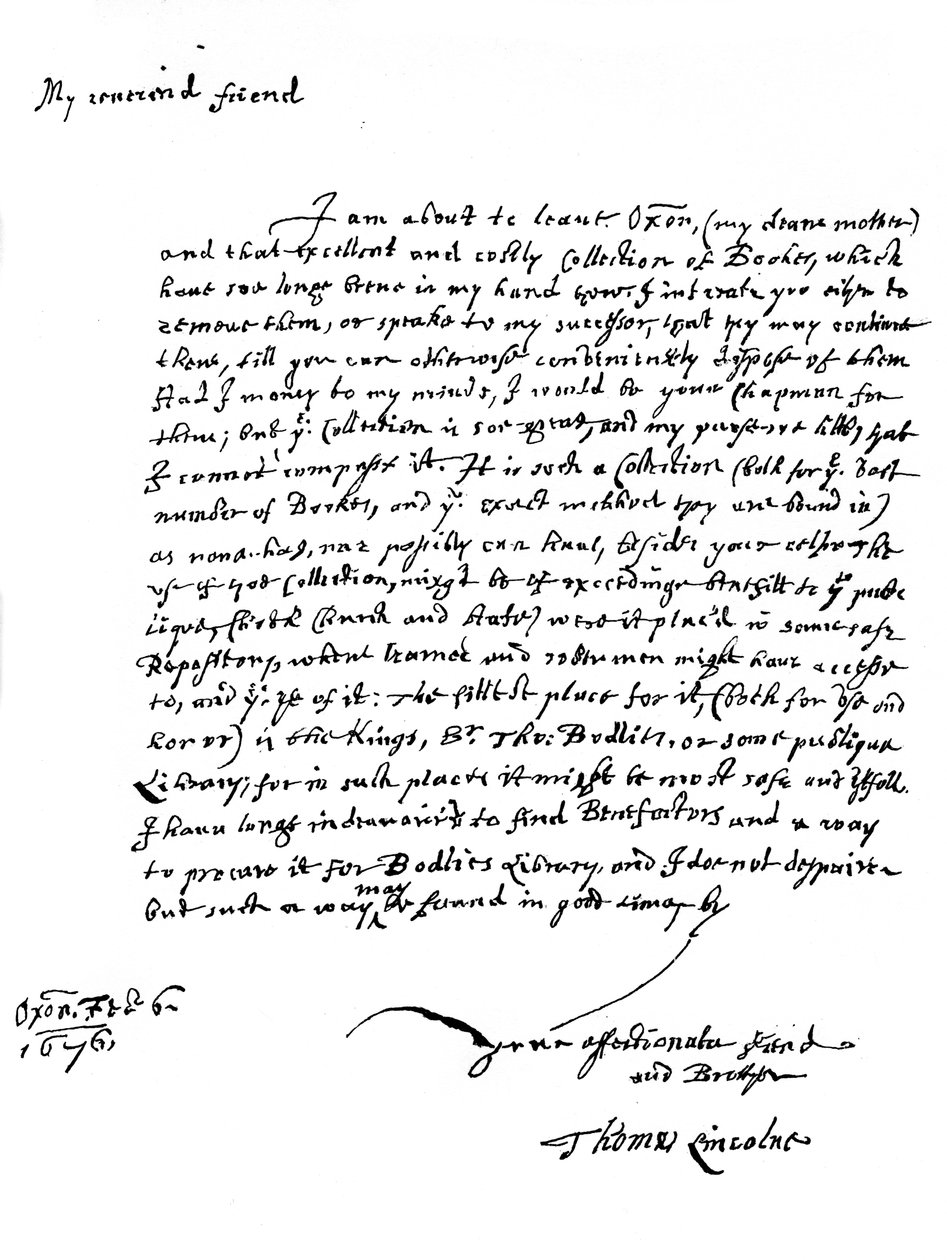 My reverend friend
I am about to leave Oxon, (my deare mother)
and that excellent and costly Collection of Bookes, which
have soe longe beene in my hand now: I intreate you either to
remove them, or speake to my successor, that they may continue
there, till you can otherwise conveniently dispose of them
Had I money to my minde, I would be your Chapman for
them; but yᵉ. Collection is soe great, and my purse soe little, that
I cannot compasse it. It is such a Collection (both for yᵉ. vast
number of Bookes, and yᵉ. exact method they are bound in)
as none has, nor possibly can have, besides your selfe. The
use of that Collection, might be of exceedinge benefitt to yᵉ pub-
lique, (both Church and State) were it plac'd in some safe
Repository, where learned and sober men might have accesse
to, and yᵉ. use of it: The fittest place for it, (both for use and
honor) is the Kings, Sr. Tho: Bodlies, or some publique
Library; for in such places it might be most safe and usefull.
I have longe indeavoured to find Benefactors and a way
to procure it for Bodlies Library, and I doe not despaire
but such a way may be found in good time by
Oxon. Feb 6.
1676.
Your affectionate friend
and Brother
Thomas Lincolne